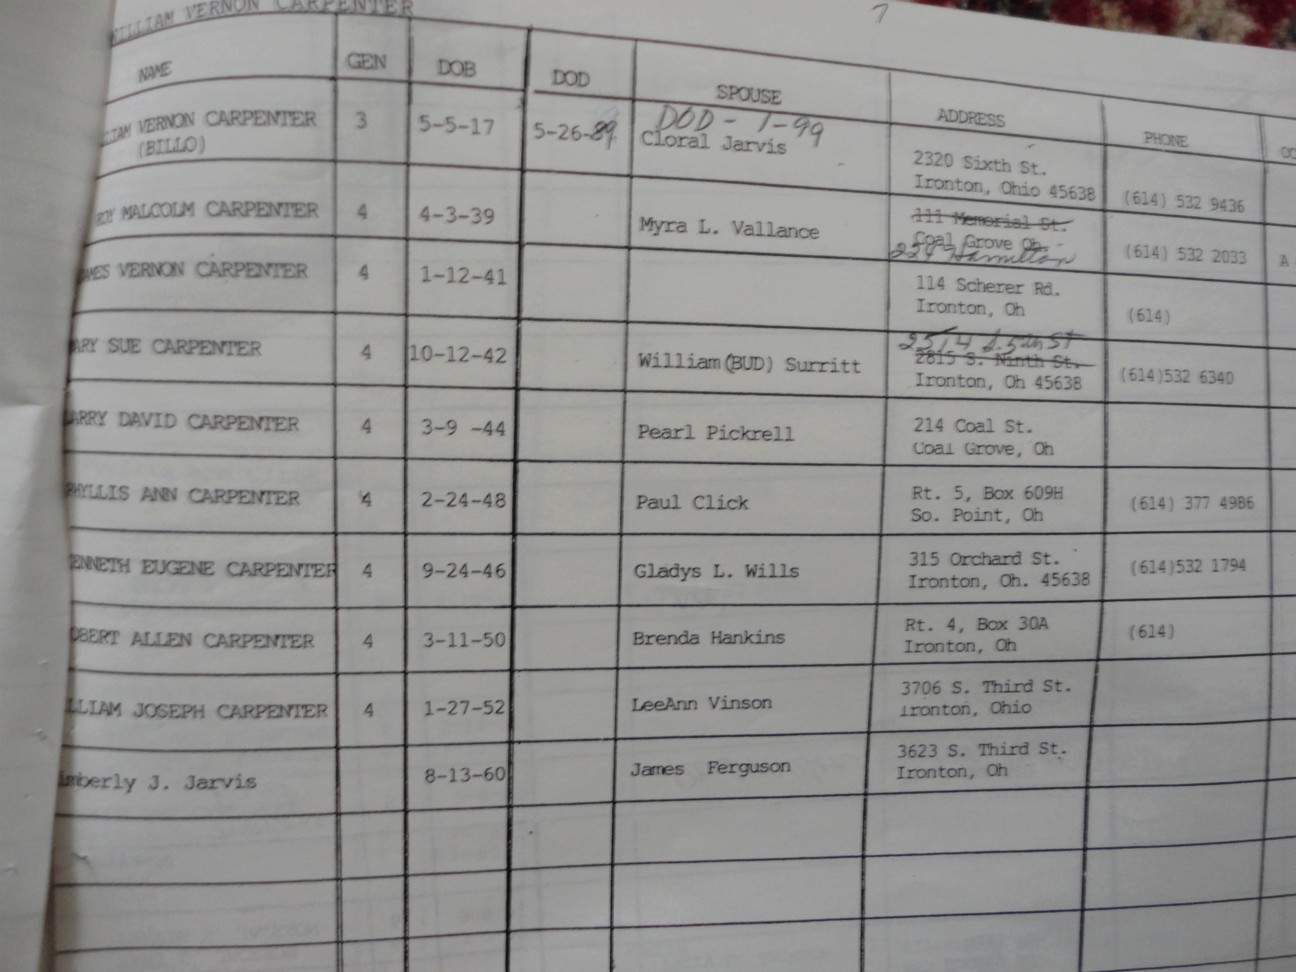 WILLIAM VERNON CARPENTER
7
NAME GEN DOB DOD SPOUSE ADDRESS PHONE
LIAM VERNON CARPENTER 3 5-5-17 5-26-89 DOD - 1-99
(BILLO) Cloral Jarvis 2320 Sixth St.
Ironton, Ohio 45638 (614) 532 9436
ROY MALCOLM CARPENTER 4 4-3-39 Myra L. Vallance 111 Memorial St.
Coal Grove Oh. (614) 532 2033 A
224 Hamilton
AMES VERNON CARPENTER 4 1-12-41 114 Scherer Rd.
Ironton, Oh (614)
ARY SUE CARPENTER 4 10-12-42 William(BUD) Surritt 2514 S. 5th St
2815 S. Ninth St.
Ironton, Oh 45638 (614)532 6340
ARRY DAVID CARPENTER 4 3-9 -44 Pearl Pickrell 214 Coal St.
Coal Grove, Oh
PHYLLIS ANN CARPENTER 4 2-24-48 Paul Click Rt. 5, Box 609H
So. Point, Oh (614) 377 4986
ENNETH EUGENE CARPENTER 4 9-24-46 Gladys L. Wills 315 Orchard St.
Ironton, Oh. 45638 (614)532 1794
OBERT ALLEN CARPENTER 4 3-11-50 Brenda Hankins Rt. 4, Box 30A
Ironton, Oh (614)
LLIAM JOSEPH CARPENTER 4 1-27-52 LeeAnn Vinson 3706 S. Third St.
Ironton, Ohio
imberly J. Jarvis 8-13-60 James Ferguson 3623 S. Third St.
Ironton, Oh